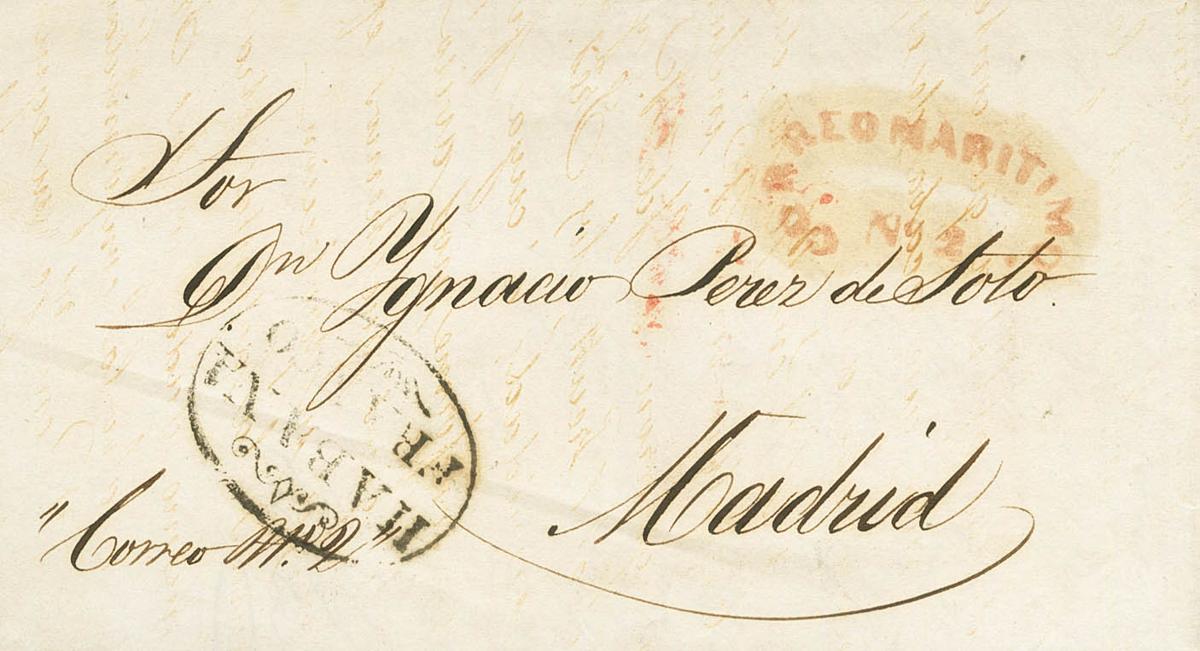 Sor
Dn Ygnacio Perez de Soto.
Madrid
"Correo Nº. 2"
CORREO MARITIMO
Nº 2.
HABANA
FRANCO